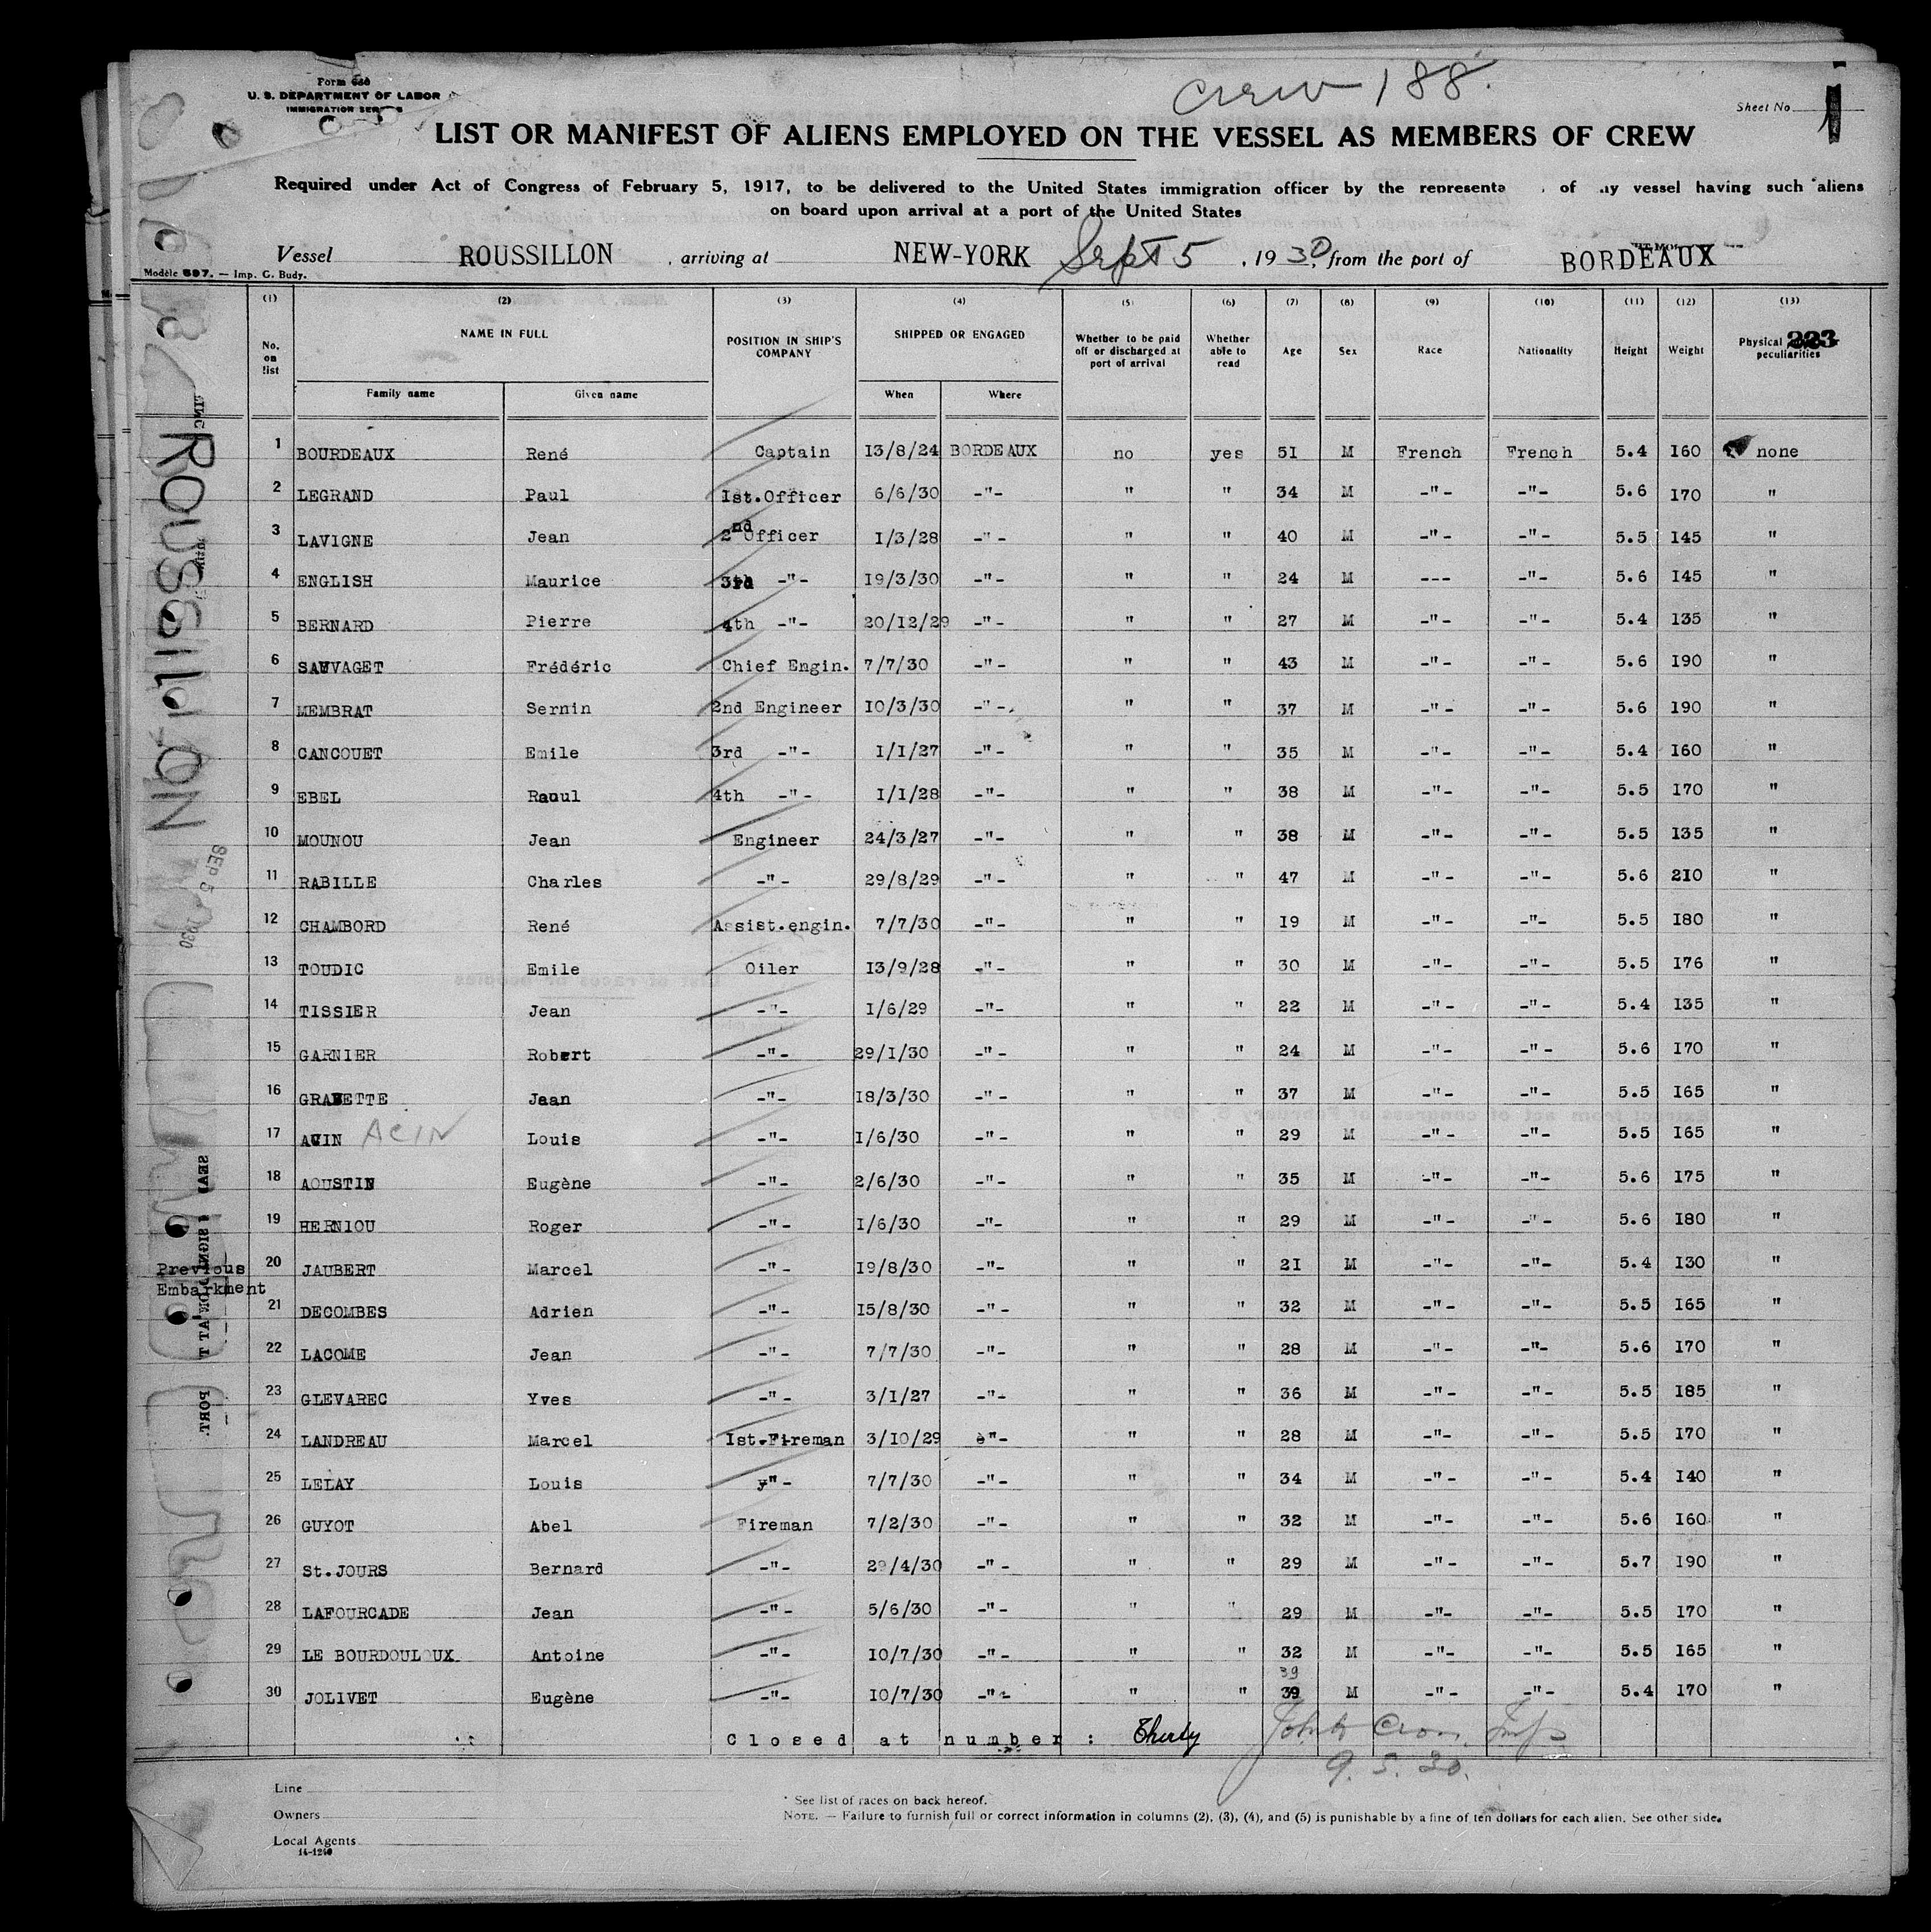 Crew 188.
Form 680
U. S. DEPARTMENT OF LABOR
IMMIGRATION SERVICE
Sheet No 1
LIST OR MANIFEST OF ALIENS EMPLOYED ON THE VESSEL AS MEMBERS OF CREW
Required under Act of Congress of February 5, 1917, to be delivered to the United States immigration officer by the representa of ny vessel having such aliens
on board upon arrival at a port of the United States
Vessel ROUSSILLON , arriving at NEW-YORK Sept 5 , 1930, from the port of BORDEAUX
Modèle 597. — Imp. G. Budy.
(1) (2) (3) (4) (5) (6) (7) (8) (9) (10) (11) (12) (13)
No. on list NAME IN FULL POSITION IN SHIP'S COMPANY SHIPPED OR ENGAGED Whether to be paid off or discharged at port of arrival Whether able to read Age Sex Race Nationality Height Weight Physical peculiarities 223
Family name Given name When Where
1 BOURDEAUX René Captain I3/8/24 BORDEAUX no yes 5I M French French 5.4 I60 none
2 LEGRAND Paul Ist.Officer 6/6/30 -"- " " 34 M -"- -"- 5.6 I70 "
3 LAVIGNE Jean 2nd Officer I/3/28 -"- " " 40 M -"- -"- 5.5 I45 "
4 ENGLISH Maurice 3rd -"- I9/3/30 -"- " " 24 M --- -"- 5.6 I45 "
5 BERNARD Pierre 4th -"- 20/I2/29 -"- " " 27 M -"- -"- 5.4 I35 "
6 SAUVAGET Frédéric Chief Engin. 7/7/30 -"- " " 43 M -"- -"- 5.6 I90 "
7 MEMBRAT Sernin 2nd Engineer I0/3/30 -"- " " 37 M -"- -"- 5.6 I90 "
8 CANCOUET Emile 3rd -"- I/I/27 -"- " " 35 M -"- -"- 5.4 I60 "
9 EBEL Raoul 4th -"- I/I/28 -"- " " 38 M -"- -"- 5.5 I70 "
10 MOUNOU Jean Engineer 24/3/27 -"- " " 38 M -"- -"- 5.5 I35 "
11 RABILLE Charles -"- 29/8/29 -"- " " 47 M -"- -"- 5.6 2I0 "
12 CHAMBORD René Assist.engin. 7/7/30 -"- " " I9 M -"- -"- 5.5 I80 "
13 TOUDIC Emile Oiler I3/9/28 -"- " " 30 M -"- -"- 5.5 I76 "
14 TISSIER Jean -"- I/6/29 -"- " " 22 M -"- -"- 5.4 I35 "
15 GARNIER Robert -"- 29/I/30 -"- " " 24 M -"- -"- 5.6 I70 "
16 Jean -"- I8/3/30 -"- " " 37 M -"- -"- 5.5 I65 "
17 ACIN ACIN Louis -"- I/6/30 -"- " " 29 M -"- -"- 5.5 I65 "
18 AOUSTIN Eugène -"- 2/6/30 -"- " " 35 M -"- -"- 5.6 I75 "
19 HERNIOU Roger -"- I/6/30 -"- " " 29 M -"- -"- 5.6 I80 "
Previous Embarkment
20 JAUBERT Marcel -"- I9/8/30 -"- " " 2I M -"- -"- 5.4 I30 "
21 DECOMBES Adrien -"- I5/8/30 -"- " " 32 M -"- -"- 5.5 I65 "
22 LACOME Jean -"- 7/7/30 -"- " " 28 M -"- -"- 5.6 I70 "
23 GLEVAREC Yves -"- 3/I/27 -"- " " 36 M -"- -"- 5.5 I85 "
24 LANDREAU Marcel Ist.Fireman 3/I0/29 -"- " " 28 M -"- -"- 5.5 I70 "
25 LELAY Louis -"- 7/7/30 -"- " " 34 M -"- -"- 5.4 I40 "
26 GUYOT Abel Fireman 7/2/30 -"- " " 32 M -"- -"- 5.6 I60 "
27 St.JOURS Bernard -"- 29/4/30 -"- " " 29 M -"- -"- 5.7 I90 "
28 LAFOURCADE Jean -"- 5/6/30 -"- " " 29 M -"- -"- 5.5 I70 "
29 LE BOURDOULOUX Antoine -"- I0/7/30 -"- " " 32 M -"- -"- 5.5 I65 "
30 JOLIVET Eugène -"- I0/7/30 -"- " " 39 39 M -"- -"- 5.4 I70 "
Closed at number : Thirty
9. 5. 30.
Line
Owners
Local Agents
14-1240
* See list of races on back hereof.
NOTE. — Failure to furnish full or correct information in columns (2), (3), (4), and (5) is punishable by a fine of ten dollars for each alien. See other side.
ROUSSILLON
SEP 5 1930